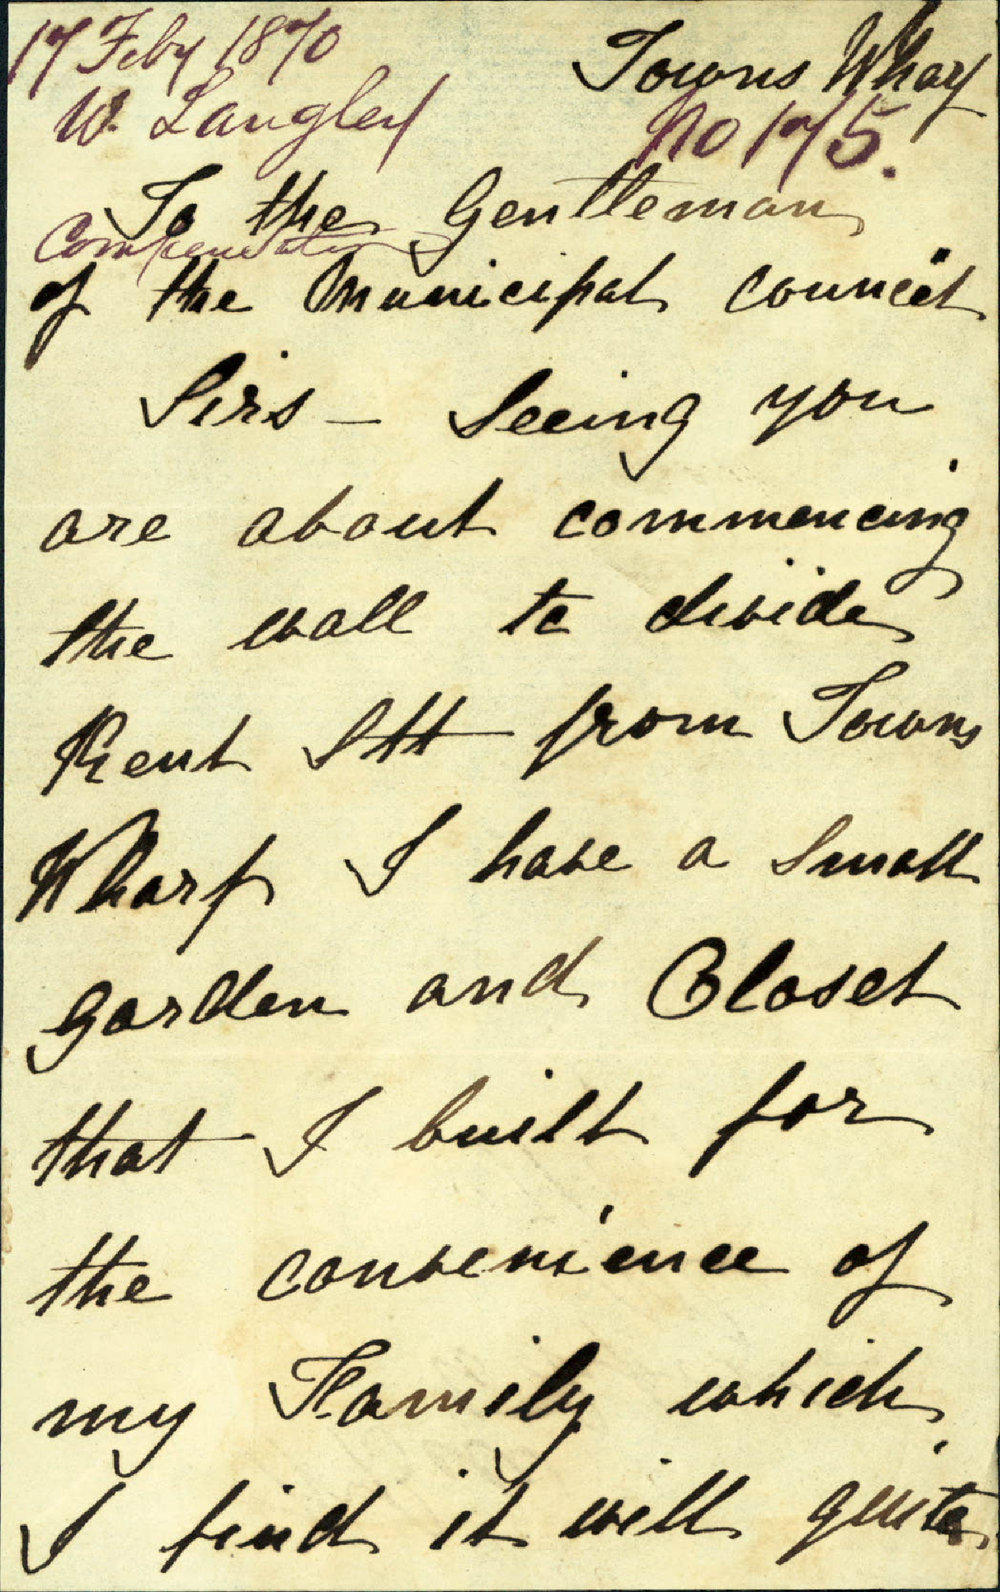 17 Feby 1870
W. Langley
Towns Wharf
No 175.
To the Gentleman
Compensation
of the Municipal Council
Sirs - Seeing you
are about commencing
the wall to divide
Kent Stt from Towns
Wharf I have a Small
garden and Closet
that I built for
the convenience of
my Family which
I find it will quite